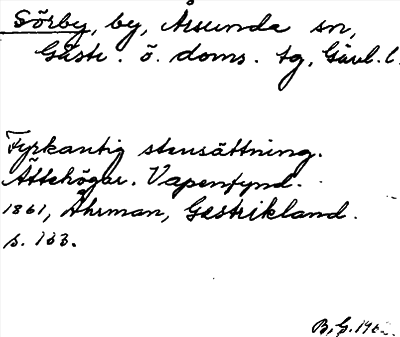 Sörby, by, Årsunda sn,
Gästr. ö. doms. tg, Gävl. l.
Fyrkantig stensättning.
Ättehögar. Vapenfynd.
1861, Åhrman, Gestrikland.
s. 133.
B.G.